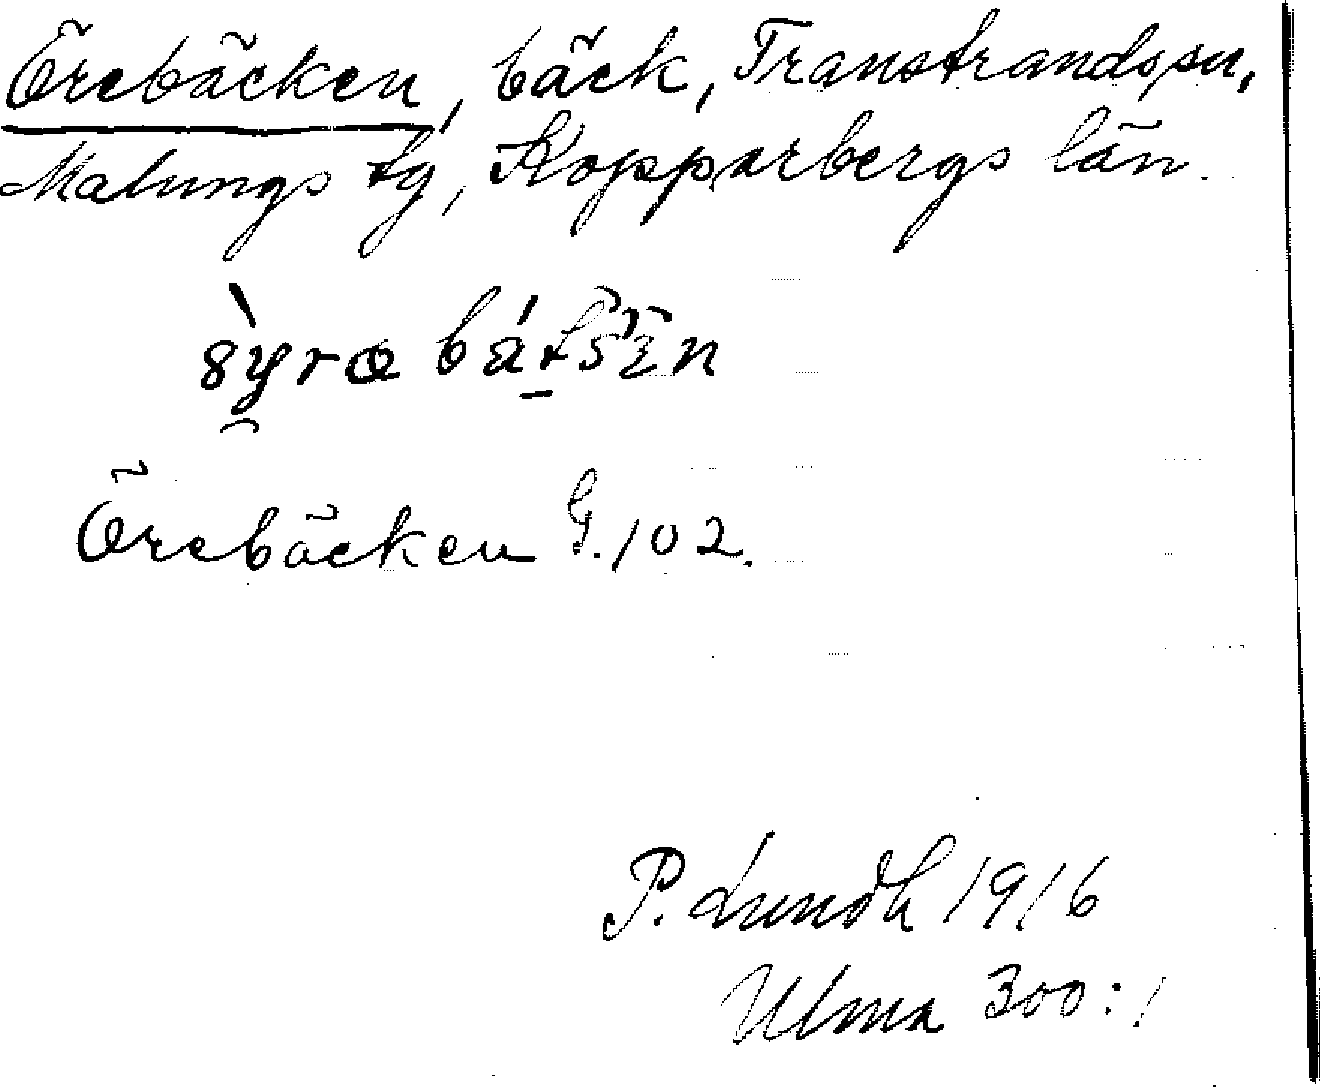 Örebäcken, bäck, Transtrands sn,
Malungs tg, Kopparbergs län.
Örebäcken G. 102.
P. Lundh 1916
Ulma 300:1